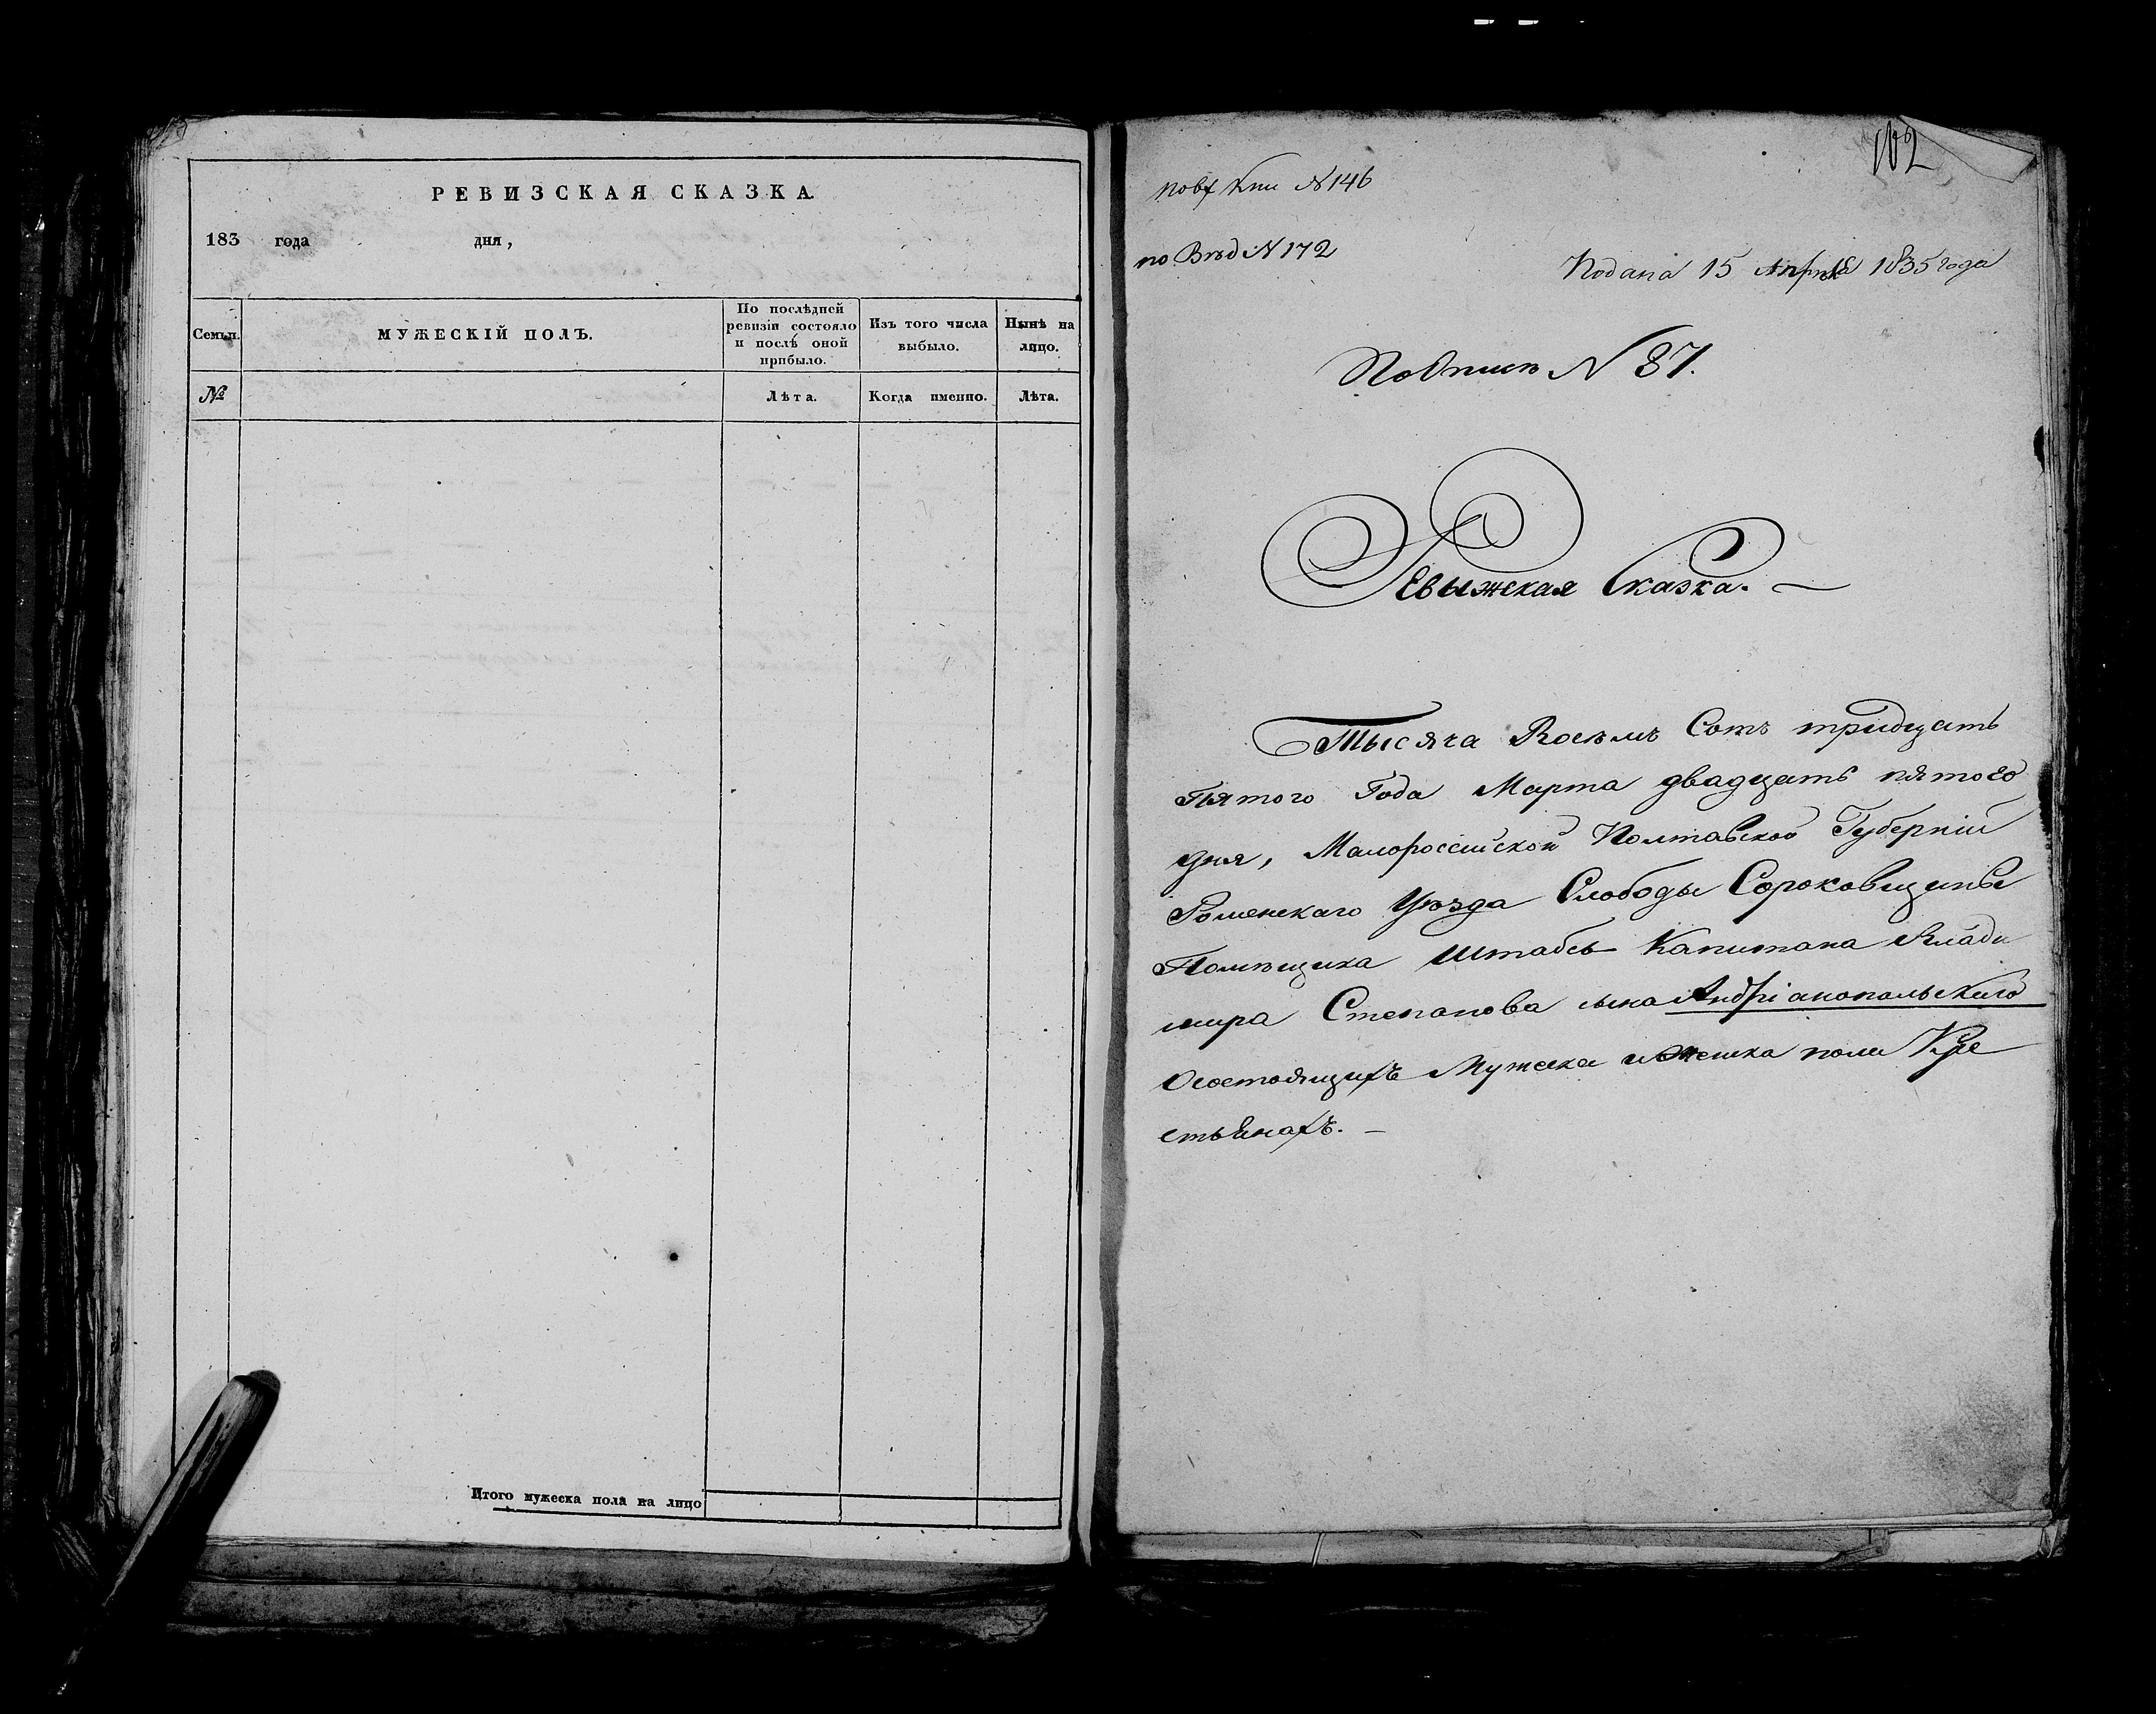 РЕВИЗСКАЯ СКАЗКА
183 года дня,
Семьи.
МУЖЕСКІЙ ПОЛЪ.
По послѣдней
ревизіи состояло
и послѣ оной
прибыло.
Изъ того числа
выбыло.
Нынѣ на
лицо.
№
Лѣта.
Когда именно.
Лѣта.
Итого мужеска пола на лицо
102
N 146
по Вѣд N 172
Подана 15 Апрѣля 1835 года
По Описи N 87.
Ревыжская Сказка.
Тысяча Восѣмъ Сотъ тридцать
Пятого Года Марта двадцать пятого
дня, Малороссійской Полтавской Губерніи
Роменскаго Уѣзда Слободы Сороковщины
Помѣщика Штабсъ Капитана Влади
мира Степанова сына Андріанопольского
Осостоящихъ Мужска иженска пола Кре
стьянахъ.